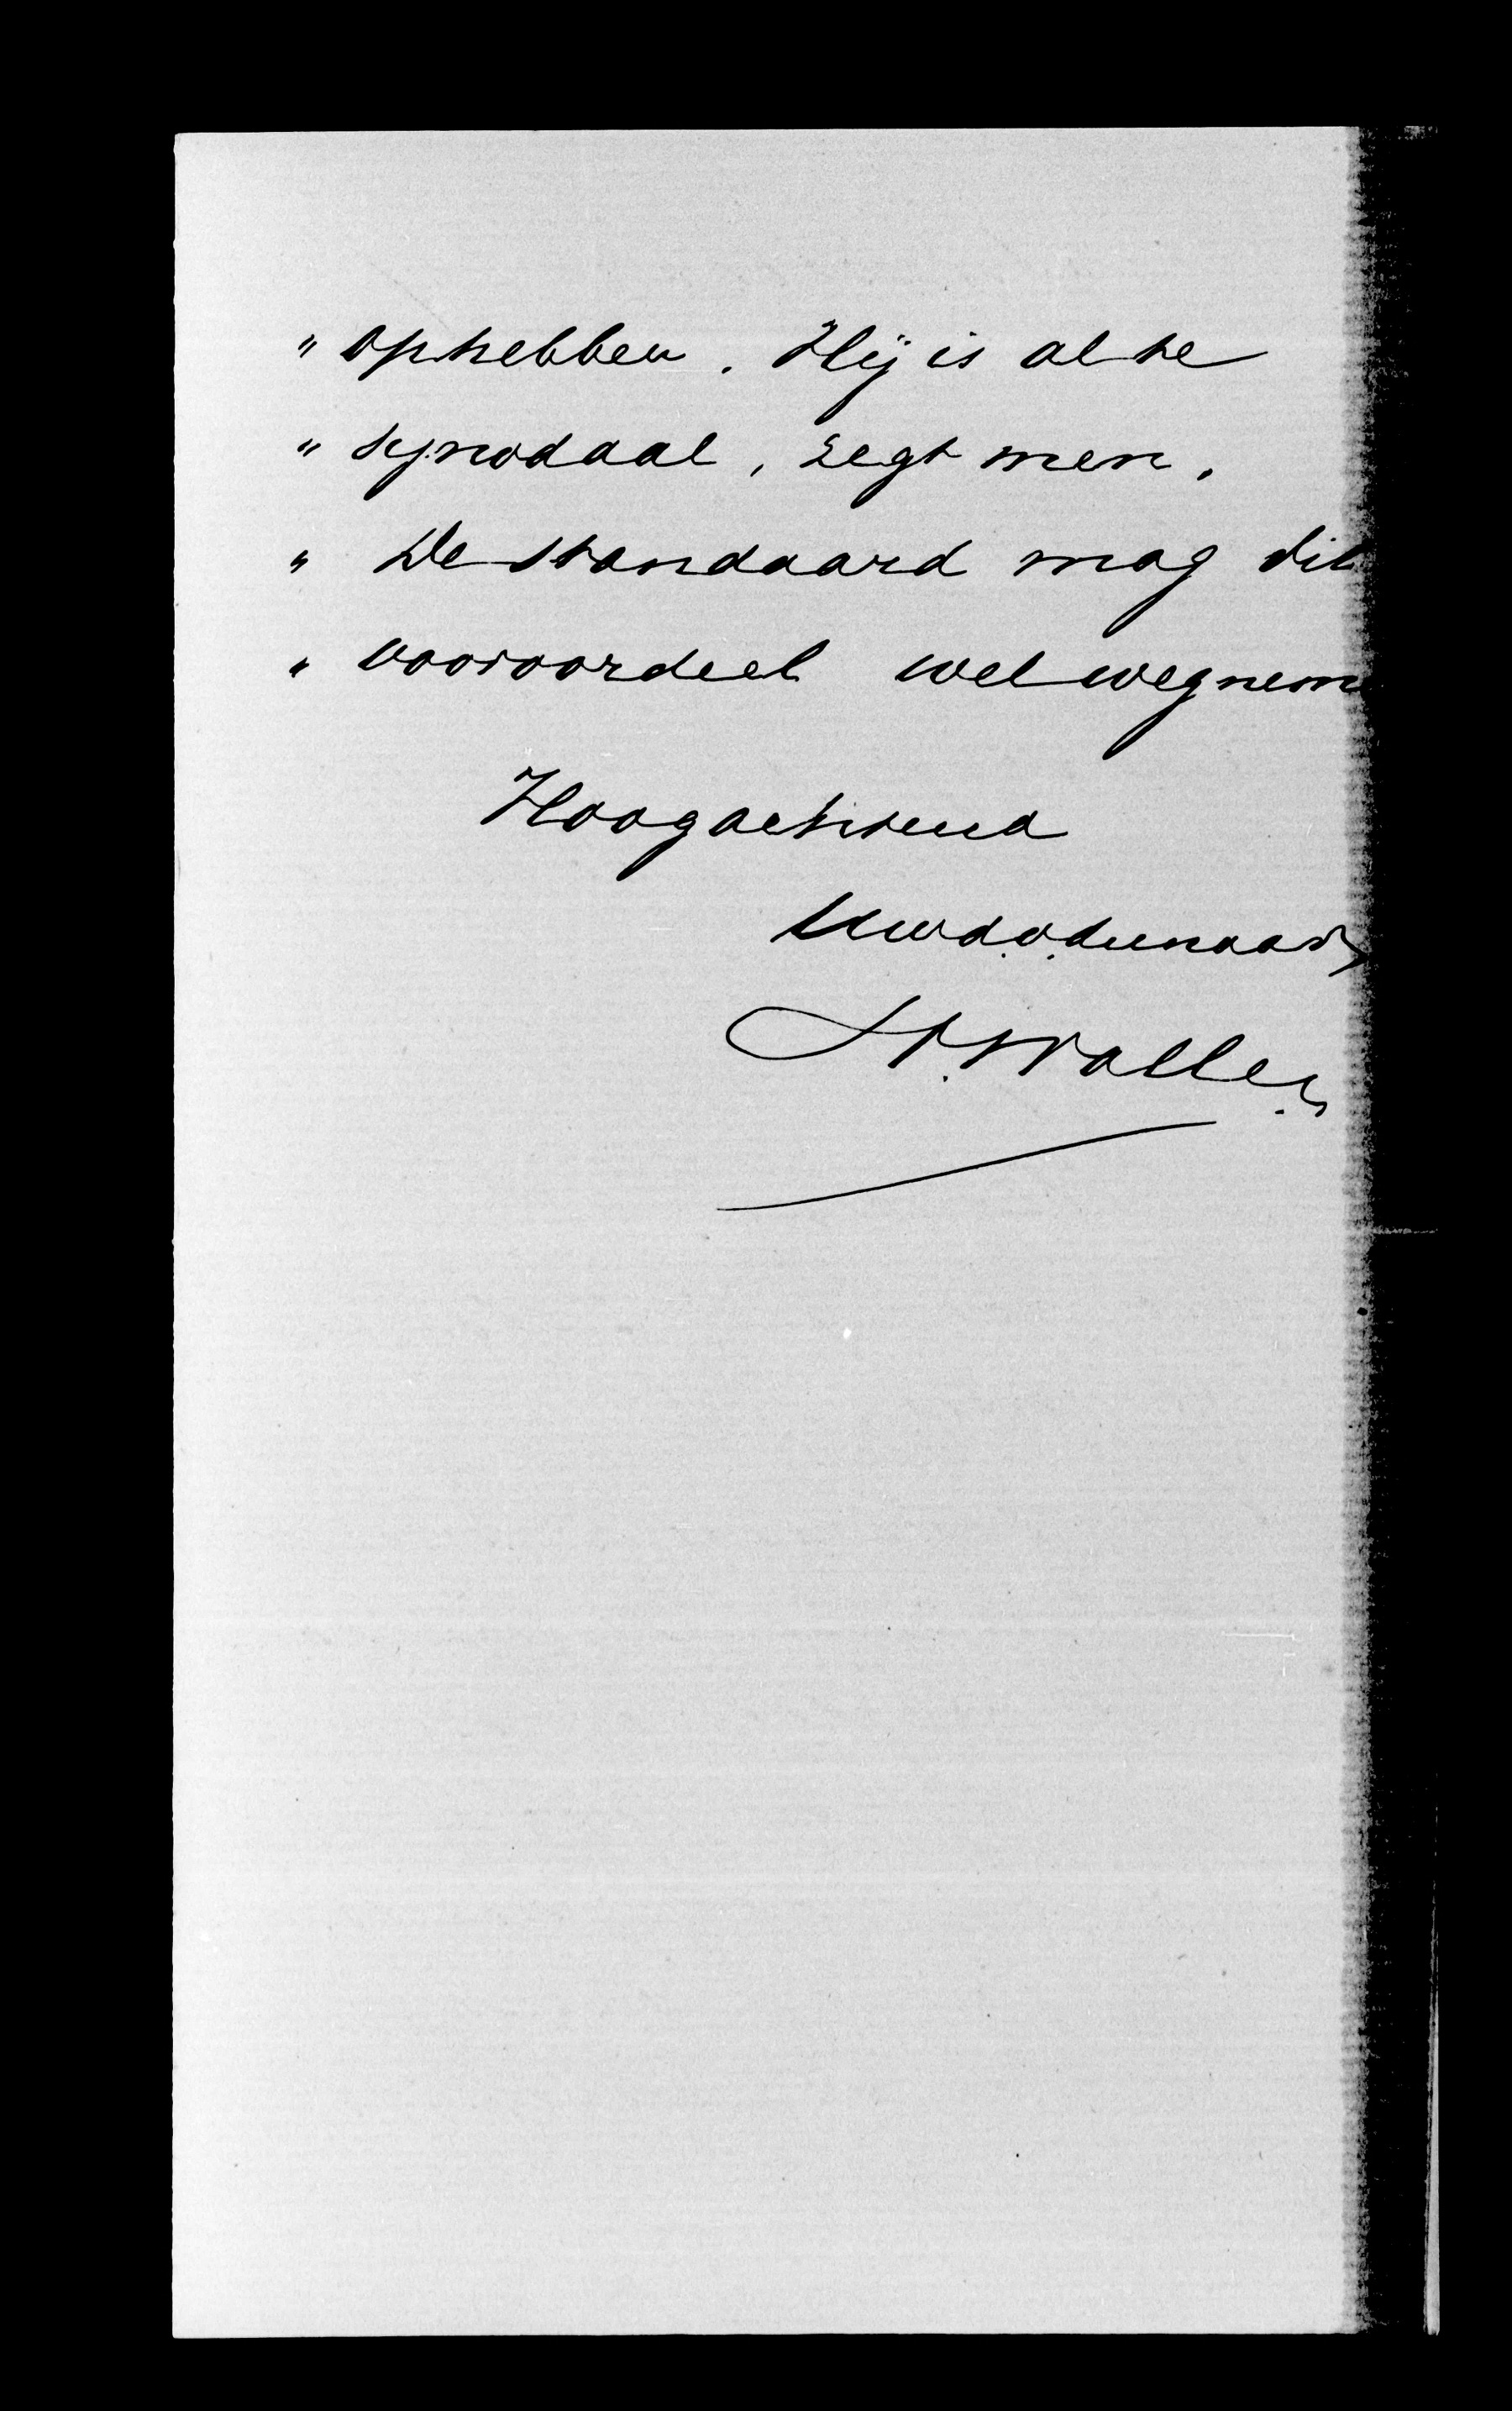 „ ophebben. Hij is al te
„ synodaal, zegt men.
„ De Standaard mag dit
„ vooroordeel wel wegnem
Hoogachtend
Uw d.v. dienaar